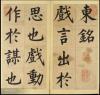 東銘
戲言出於
思也戲動
作於謀也